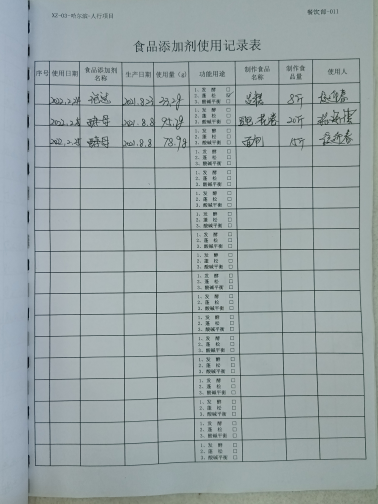 XZ-03-哈尔滨-人行项目
餐饮部-011
食品添加剂使用记录表
序号 使用日期 食品添加剂名称 生产日期 使用量(g) 功能用途 制作食品名称 制作食品量 使用人
1、发 酵 □
2、蓬 松
3、酸碱平衡 □
2021.8.23 8斤
1、发 酵
2、蓬 松 □
3、酸碱平衡 □
酵母 2021.8.8
1、发 酵
2、蓬 松 □
3、酸碱平衡 □
酵母 2021.8.8 78.9g 15斤
1、发 酵 □
2、蓬 松 □
3、酸碱平衡 □
1、发 酵 □
2、蓬 松 □
3、酸碱平衡 □
1、发 酵 □
2、蓬 松 □
3、酸碱平衡 □
1、发 酵 □
2、蓬 松 □
3、酸碱平衡 □
1、发 酵 □
2、蓬 松 □
3、酸碱平衡 □
1、发 酵 □
2、蓬 松 □
3、酸碱平衡 □
1、发 酵 □
2、蓬 松 □
3、酸碱平衡 □
1、发 酵 □
2、蓬 松 □
3、酸碱平衡 □
1、发 酵 □
2、蓬 松 □
3、酸碱平衡 □
1、发 酵 □
2、蓬 松 □
3、酸碱平衡 □
1、发 酵 □
2、蓬 松 □
3、酸碱平衡 □
1、发 酵 □
2、蓬 松 □
3、酸碱平衡 □
1、发 酵 □
2、蓬 松 □
3、酸碱平衡 □
1、发 酵 □
2、蓬 松 □
3、酸碱平衡 □
1、发 酵 □
2、蓬 松 □
3、酸碱平衡 □